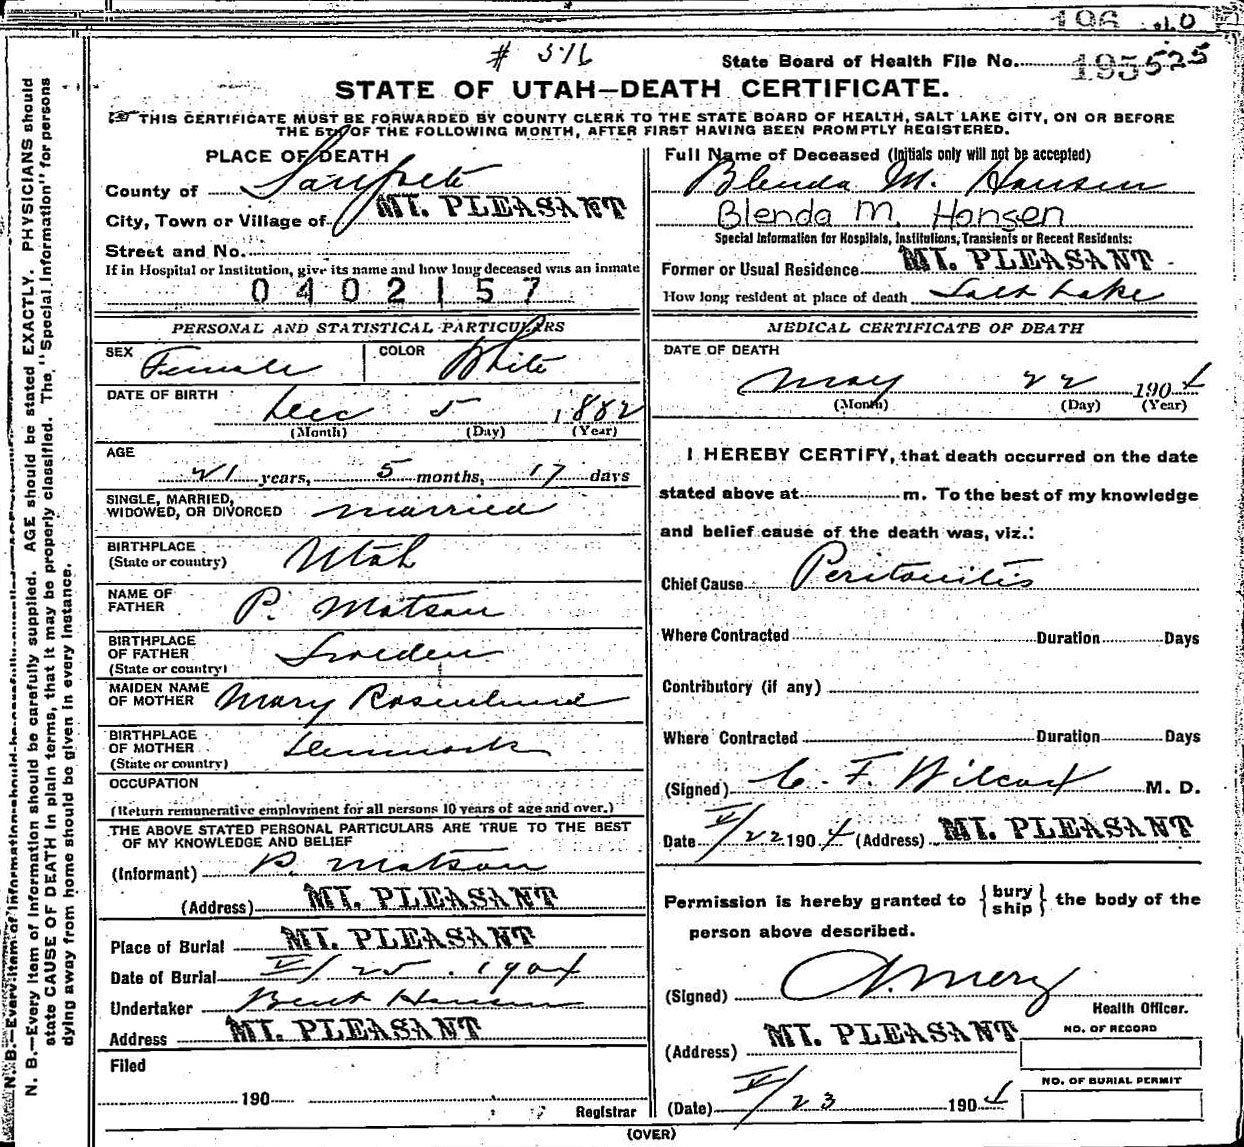 # 516
State Board of Health File No. 195525
STATE OF UTAH—DEATH CERTIFICATE.
THIS CERTIFICATE MUST BE FORWARDED BY COUNTY CLERK TO THE STATE BOARD OF HEALTH, SALT LAKE CITY, ON OR BEFORE
THE 5TH OF THE FOLLOWING MONTH, AFTER FIRST HAVING BEEN PROMPTLY REGISTERED.
PLACE OF DEATH
County of Sanpete
City, Town or Village of MT. PLEASANT
Street and No.
If in Hospital or Institution, give its name and how long deceased was an inmate
0402157
PERSONAL AND STATISTICAL PARTICULARS
SEX Female COLOR White
DATE OF BIRTH
Dec 5 1882
(Month) (Day) (Year)
AGE
21 years, 5 months, 17 days
SINGLE, MARRIED,
WIDOWED, OR DIVORCED married
BIRTHPLACE
(State or country) Utah
NAME OF
FATHER P. Matson
BIRTHPLACE
OF FATHER Sweden
(State or country)
MAIDEN NAME
OF MOTHER Mary Rosenlund
BIRTHPLACE
OF MOTHER Denmark
(State or country)
OCCUPATION
(Return remunerative employment for all persons 10 years of age and over.)
THE ABOVE STATED PERSONAL PARTICULARS ARE TRUE TO THE BEST
OF MY KNOWLEDGE AND BELIEF
(Informant) P. Matson
(Address) MT. PLEASANT
Place of Burial MT. PLEASANT
Date of Burial V/25. 1904
Undertaker Bent Hansen
Address MT. PLEASANT
Filed
190
Registrar
Full Name of Deceased (Initials only will not be accepted)
Blenda M. Hansen
Blenda M. Hansen
Special Information for Hospitals, Institutions, Transients or Recent Residents:
Former or Usual Residence MT. PLEASANT
How long resident at place of death Salt Lake
MEDICAL CERTIFICATE OF DEATH
DATE OF DEATH
May 22 1904
(Month) (Day) (Year)
I HEREBY CERTIFY, that death occurred on the date
stated above at m. To the best of my knowledge
and belief cause of the death was, viz.:
Chief Cause Peritonitis
Where Contracted Duration Days
Contributory (if any)
Where Contracted Duration Days
(Signed) C. F. Wilcox M. D.
Date V/22 1904 (Address) MT. PLEASANT
Permission is hereby granted to {bury
ship} the body of the
person above described.
(Signed)
Health Officer.
(Address) MT. PLEASANT
NO. OF RECORD
NO. OF BURIAL PERMIT
(Date) V/23 1904
(OVER)
N. B.—Every item of information should be carefully supplied. AGE should be stated EXACTLY. PHYSICIANS should
state CAUSE OF DEATH in plain terms, that it may be properly classified. The "Special Information" for persons
dying away from home should be given in every instance.